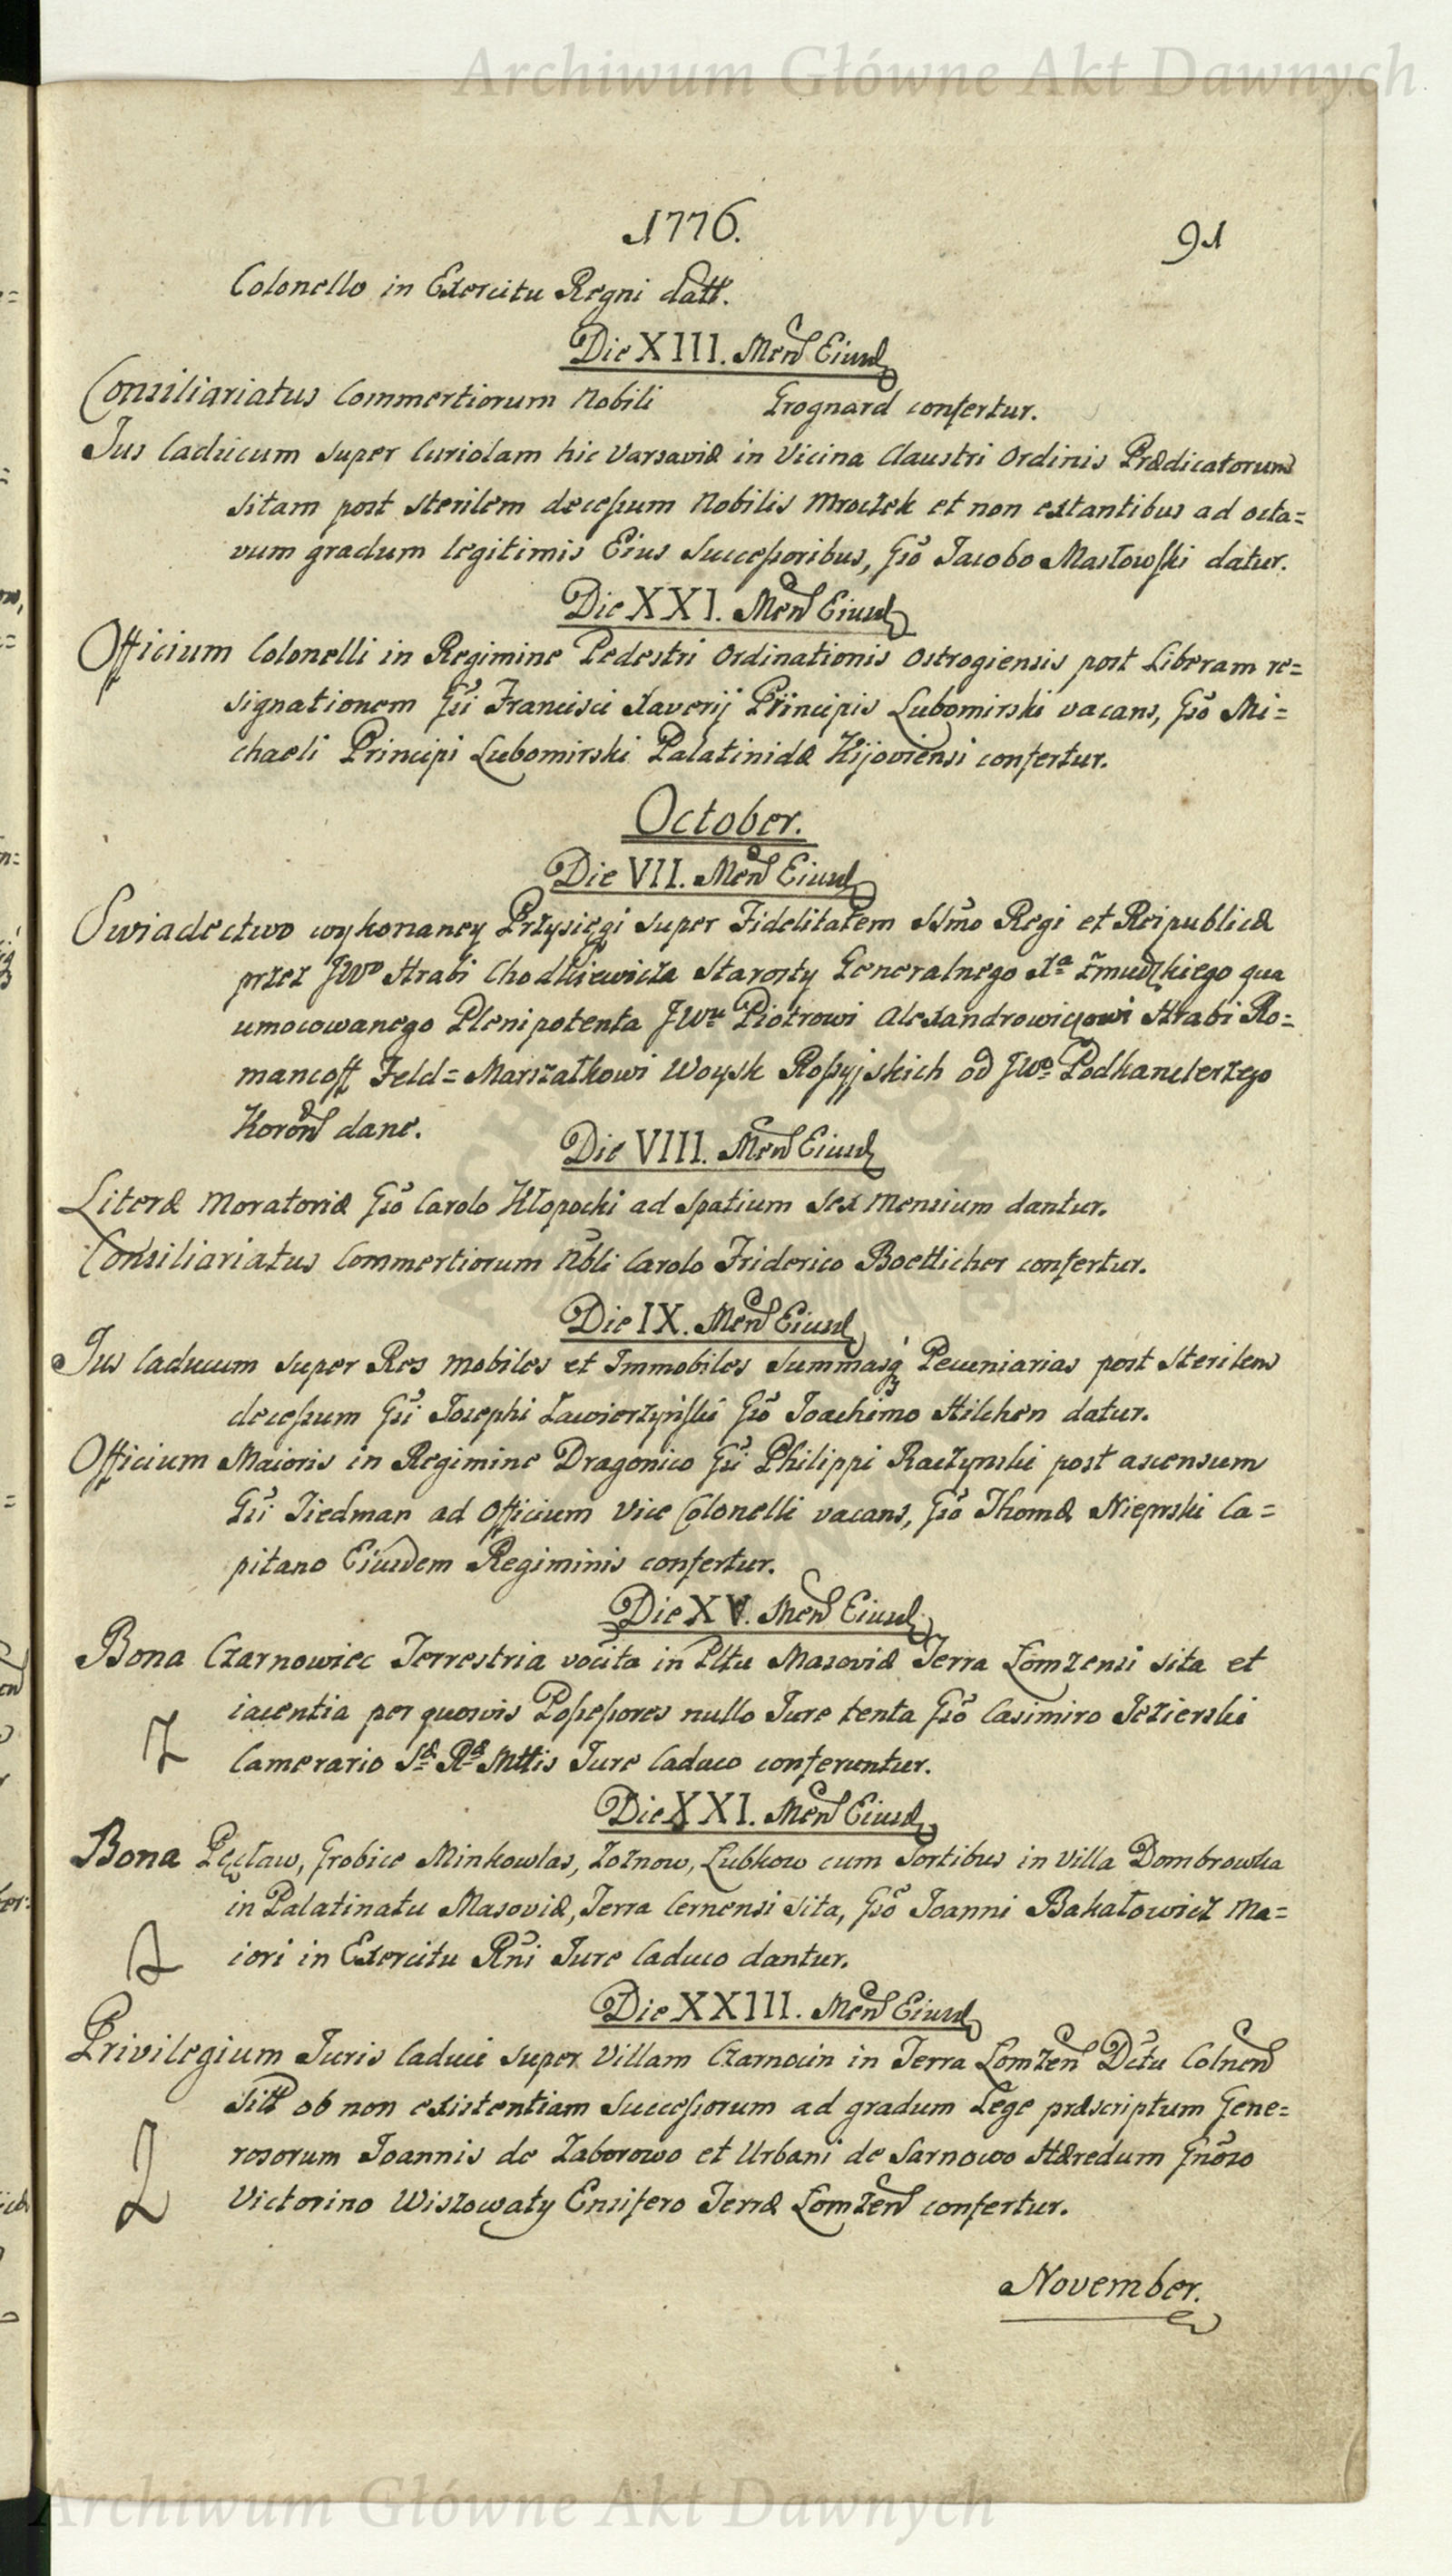 Archiwum Główne Akt Dawnych
1776.
91
Colonello in Exercitu Regni datt.
Die XIII. Men Eiusd
Consiliariatus Commertiorum Nobili Grognard confertur.
Jus Caducum super Curiolam hic Varsaviæ in Vicina Claustri Ordinis Prædicatorum
sitam post sterilem decessum Nobilis Mroczek et non extantibus ad octa=
vum gradum legitimis Eius Successoribus, Gso Jacobo Masłowski datur.
Die XXI. Men Eiusd
Officium Colonelli in Regimine Pedestri Ordinationis Ostrogiensis post Liberam re=
signationem Gsi Francisci Xaverij Principis Lubomirski vacans, Gso Mi=
chaeli Principi Lubomirski Palatinidæ Kijoviensi confertur.
October.
Die VII. Men Eiusd
Swiadectwo wykonaney Przysięgi super Fidelitatem SSmo Regi et Reipublicæ
przez JWo Hrabi Chodkiewicza Starosty Generalnego Xa Żmudzkiego qua
umocowanego Plenipotenta JWu Piotrowi Alexandrowiczowi Hrabi Ro=
mancoff Feld=Marszałkowi Woysk Rossyjskich od JWo Podkanclerzego
Koron dane.
Die VIII. Men Eiusd
Literæ Moratoriæ Gso Carolo Kłopocki ad Spatium Sex Mensium dantur.
Consiliariatus Commertiorum Nbli Carolo Friderico Boetticher confertur.
Die IX. Men Eiusd
Jus Caducum super Res mobiles et Immobiles Summasq Pecuniarias post Sterilem
decessum Gsi Josephi Zawierzyński Gso Joachimo Hilchen datur.
Officium Maioris in Regimine Dragonico Gsi Philippi Raczynski post ascensum
Gsi Tiedman ad Officium Vice Colonelli vacans, Gso Thomæ Niepski Ca=
pitano Eiusdem Regiminis confertur.
Die XV. Men Eiusd
Bona Czarnowiec Terrestria vocita in Pltu Masoviæ Terra Łomzensi sita et
iacentia per quosvis Possessores nullo Jure tenta Gso Casimiro Jezierski
Camerario Sæ Ræ Mttis Jure Caduco conferuntur.
Die XXI. Men Eiusd
Bona Pęcław, Grobice Minkowlas, Zoznow, Lubkow cum Sortibus in Villa Dombrowka
in Palatinatu Masoviæ, Terra Cernensi sita, Gso Joanni Bakałowicz Ma=
iori in Exercitu Rni Jure Caduco dantur.
Die XXIII. Men Eiusd
Privilegium Juris Caduci super Villam Czarnocin in Terra Łomzen Dctu Colnen
sitt ob non existentiam Successorum ad gradum Lege præscriptum Gene=
rosorum Joannis de Zaborowo et Urbani de Sarnowo Hæredum Gnoso
Victorino Wiszowaty Ensifero Terræ Łomzen confertur.
November.
Archiwum Główne Akt Dawnych